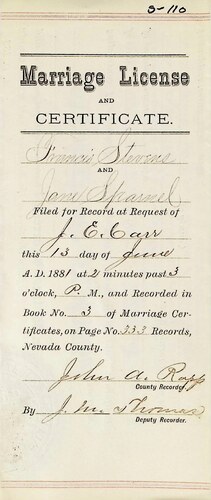 3-110
Marriage License
AND
CERTIFICATE.
Francis Stevens
AND
Jane Spearnel
Filed for Record at Request of
J. E. Carr
this 13 day of June
A. D. 1881 at 2 minutes past 3
o'clock, P. M., and Recorded in
Book No. 3 of Marriage Cer-
tificates, on Page No. 333 Records,
Nevada County.
John A. Rapp
County Recorder.
By J. M. Thomas
Deputy Recorder.